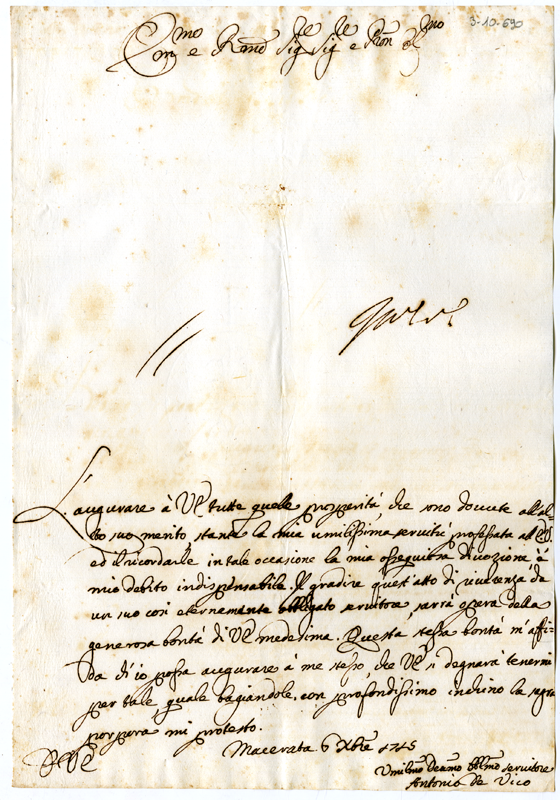 3-10-690
Em.mo e R.mo Sig.re Sig.re e Pron Col.mo
L'augurare à V.E. tutte quelle prosperità, che sono dovute all'al-
to suo merito stante la mia umilissima servitù professata all' E.V.
ed il ricordarle in tale occasione la mia ossequiosa divozione è
mio debito indispensabile. Il gradire quest'atto di riverenza da
un suo così eternemante obbligato servitore, sarrà opera della
generosa bontà di V.E. medesima. Questa stessa bontà m'affi-
da di io possa augurare à me stesso che V.E. si degnarà tenermi
per tale, quale bagiandole con profondissimo inchino la sagra
porpora mi protesto.
Macerata 6 Xbre 1715
Umilmo Devmo Obblmo servitore
Antonio de Vico